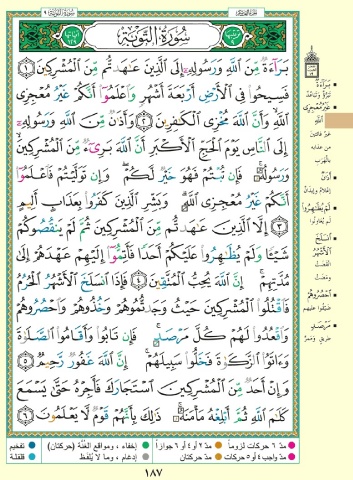 سُورَةُ التَّوْبَةِ
بَرَآءَةٌ مِّنَ ٱللَّهِ وَرَسُولِهِۦٓ إِلَى ٱلَّذِينَ عَٰهَدتُّم مِّنَ ٱلْمُشْرِكِينَ ١
فَسِيحُوا۟ فِى ٱلْأَرْضِ أَرْبَعَةَ أَشْهُرٍ وَٱعْلَمُوٓا۟ أَنَّكُمْ غَيْرُ مُعْجِزِى
ٱللَّهِ ۙ وَأَنَّ ٱللَّهَ مُخْزِى ٱلْكَٰفِرِينَ ٢ وَأَذَٰنٌ مِّنَ ٱللَّهِ وَرَسُولِهِۦٓ
إِلَى ٱلنَّاسِ يَوْمَ ٱلْحَجِّ ٱلْأَكْبَرِ أَنَّ ٱللَّهَ بَرِىٓءٌ مِّنَ ٱلْمُشْرِكِينَ ۙ
وَرَسُولُهُۥ ۚ فَإِن تُبْتُمْ فَهُوَ خَيْرٌ لَّكُمْ ۖ وَإِن تَوَلَّيْتُمْ فَٱعْلَمُوٓا۟
أَنَّكُمْ غَيْرُ مُعْجِزِى ٱللَّهِ ۗ وَبَشِّرِ ٱلَّذِينَ كَفَرُوا۟ بِعَذَابٍ أَلِيمٍ
٣ إِلَّا ٱلَّذِينَ عَٰهَدتُّم مِّنَ ٱلْمُشْرِكِينَ ثُمَّ لَمْ يَنقُصُوكُمْ
شَيْـًٔا وَلَمْ يُظَٰهِرُوا۟ عَلَيْكُمْ أَحَدًا فَأَتِمُّوٓا۟ إِلَيْهِمْ عَهْدَهُمْ إِلَىٰ
مُدَّتِهِمْ ۚ إِنَّ ٱللَّهَ يُحِبُّ ٱلْمُتَّقِينَ ٤ فَإِذَا ٱنسَلَخَ ٱلْأَشْهُرُ ٱلْحُرُمُ
فَٱقْتُلُوا۟ ٱلْمُشْرِكِينَ حَيْثُ وَجَدتُّمُوهُمْ وَخُذُوهُمْ وَٱحْصُرُوهُمْ
وَٱقْعُدُوا۟ لَهُمْ كُلَّ مَرْصَدٍ ۚ فَإِن تَابُوا۟ وَأَقَامُوا۟ ٱلصَّلَوٰةَ
وَءَاتَوُا۟ ٱلزَّكَوٰةَ فَخَلُّوا۟ سَبِيلَهُمْ ۚ إِنَّ ٱللَّهَ غَفُورٌ رَّحِيمٌ ٥
وَإِنْ أَحَدٌ مِّنَ ٱلْمُشْرِكِينَ ٱسْتَجَارَكَ فَأَجِرْهُ حَتَّىٰ يَسْمَعَ
كَلَٰمَ ٱللَّهِ ثُمَّ أَبْلِغْهُ مَأْمَنَهُۥ ۚ ذَٰلِكَ بِأَنَّهُمْ قَوْمٌ لَّا يَعْلَمُونَ ٦
بَرَآءَةٌ
غَيْرُ مُعْجِزِى
ٱللَّهِ
مِن عذابه
بالهَرَب
لَمْ يُظَٰهِرُوا۟
ٱنسَلَخَ
ٱلْأَشْهُرُ
ٱحْصُرُوهُمْ
مَرْصَدٍ
مدّ ٦ حركات لزوماً مدّ ٢ أو ٤ أو ٦ جوازاً إخفاء، ومواقع الغُنَّة (حركتان) تفخيم
مدّ واجب ٤ أو ٥ حركات مدّ حركتان إدغام، وما لا يُلفَظ قلقلة
١٨٧